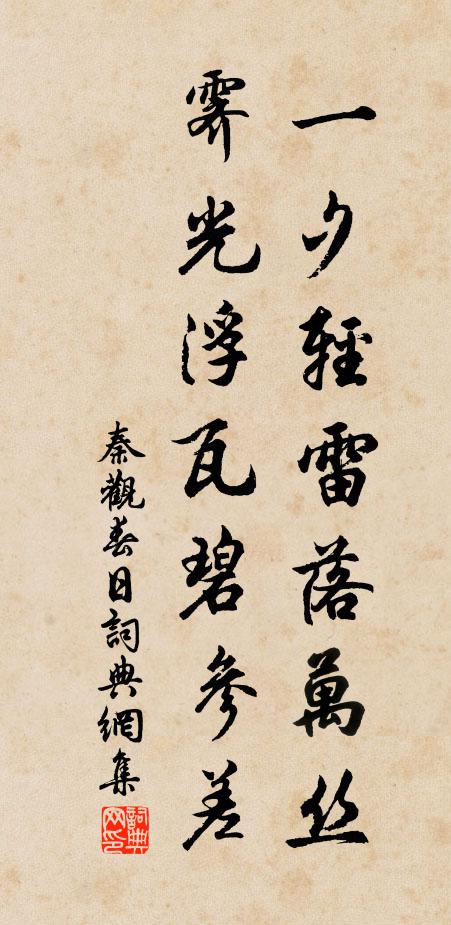 一夕輕雷落萬丝
霽光浮瓦碧參差
秦觀春日詞典網集
詞典网印